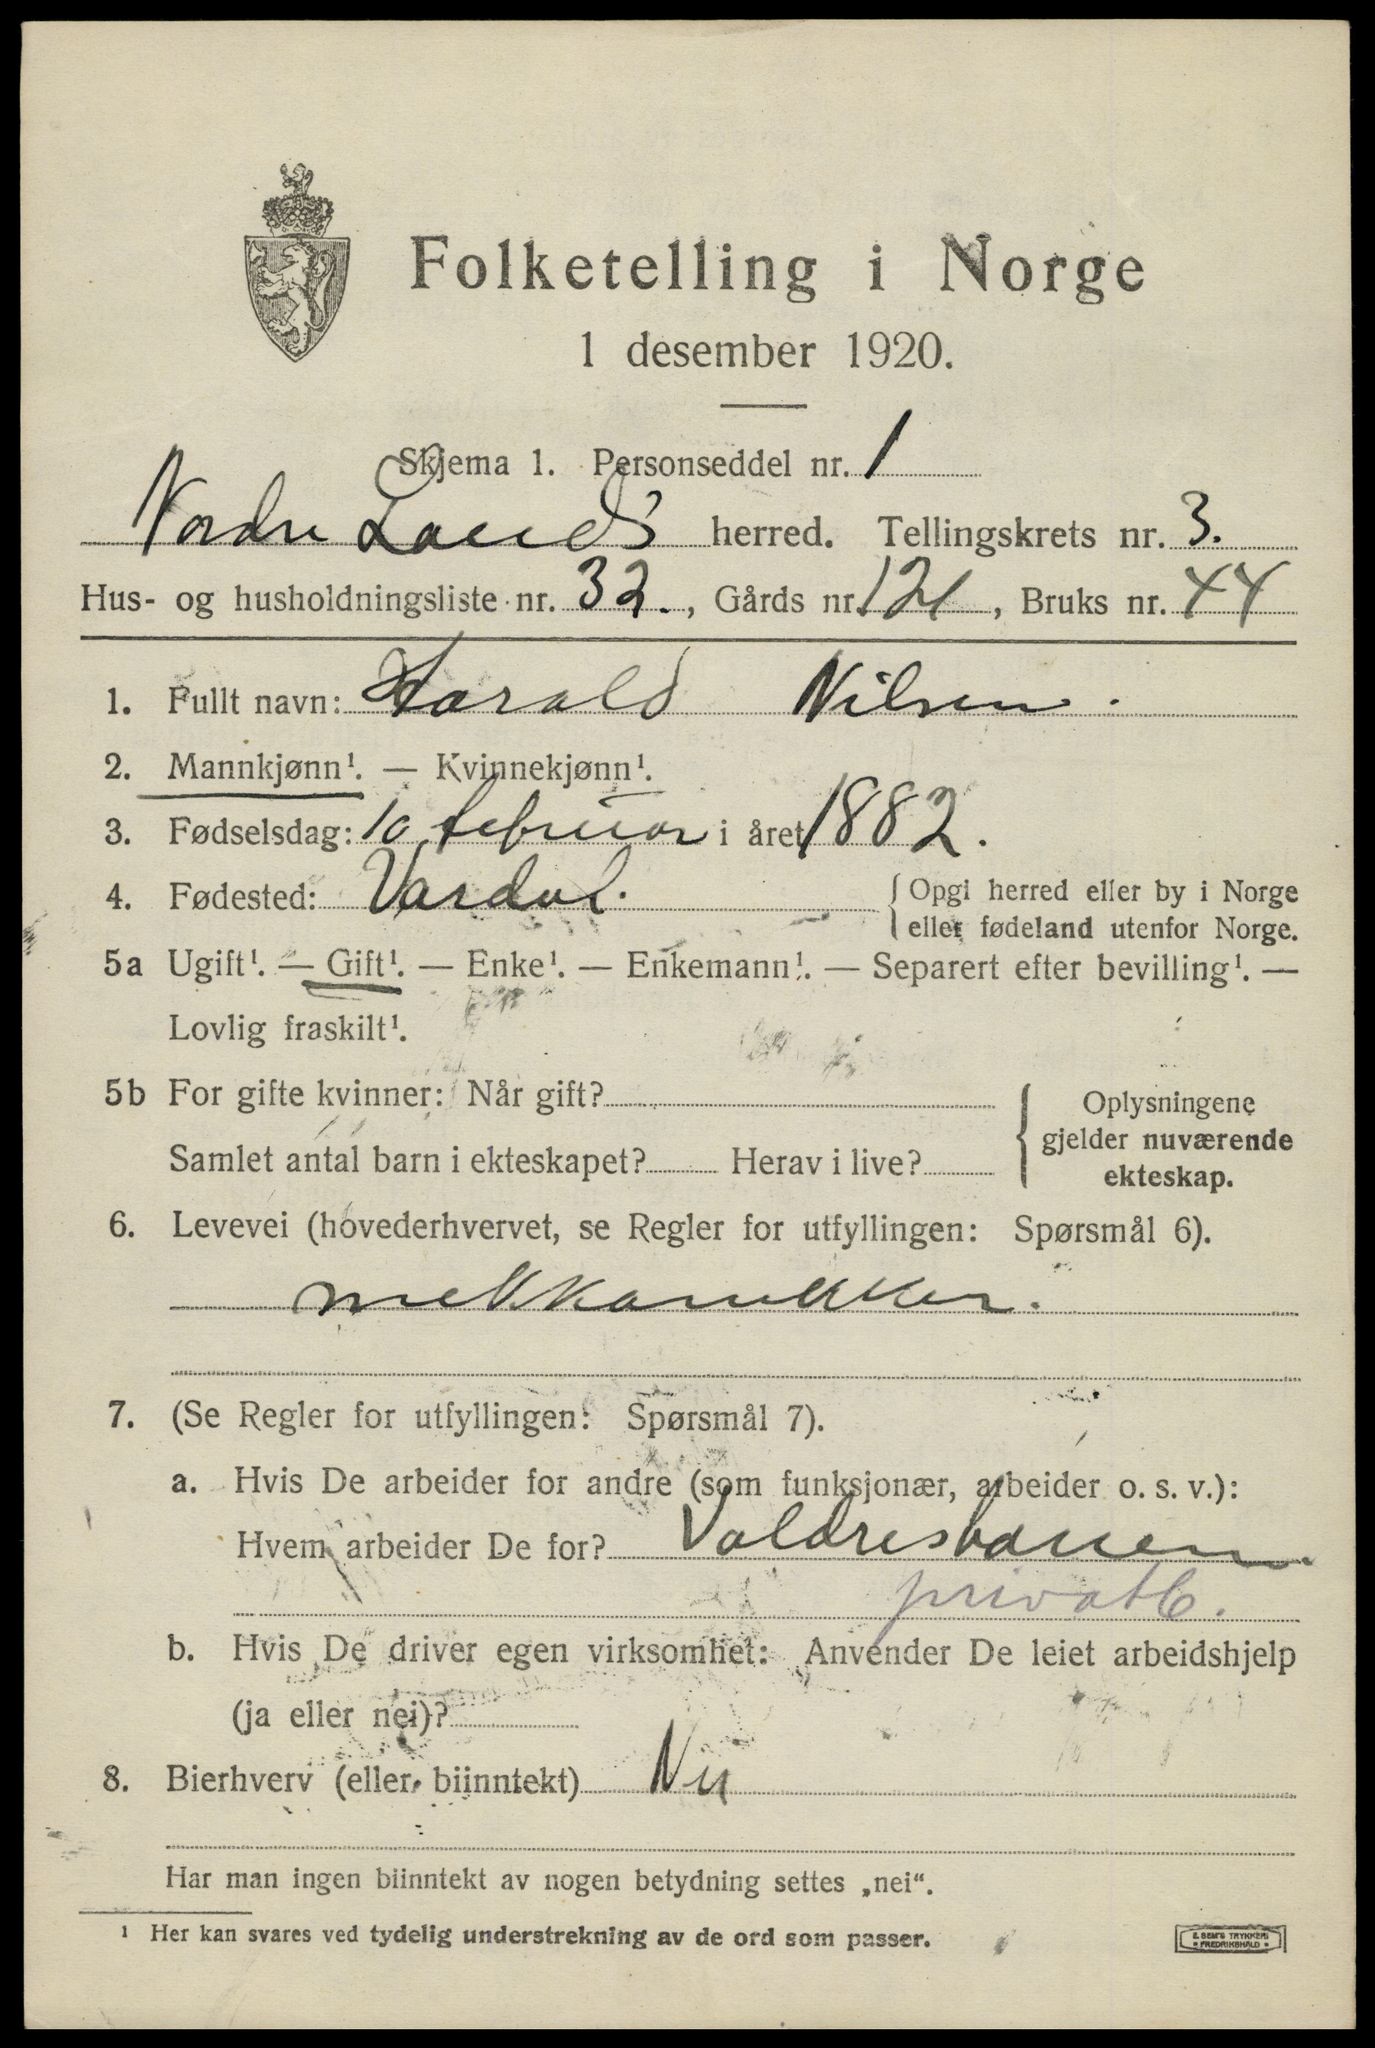 Folketelling i Norge
1 desember 1920.
Skjema 1. Personseddel nr. 1
Nordre Lands herred. Tellingskrets nr. 3.
Hus- og husholdningsliste nr. 32., Gårds nr. 121, Bruks nr. 44
1. Fullt navn: Harald Nilsen.
2. Mannkjønn¹. — Kvinnekjønn¹.
3. Fødselsdag: 10 februar i året 1882.
4. Fødested: Vardal. { Opgi herred eller by i Norge
eller fødeland utenfor Norge.
5a Ugift¹. — Gift¹. — Enke¹. — Enkemann¹. — Separert efter bevilling¹. —
Lovlig fraskilt¹.
5b For gifte kvinner: Når gift? { Oplysningene
gjelder nuværende
Samlet antal barn i ekteskapet? Herav i live?
ekteskap.
6. Levevei (hovederhvervet, se Regler for utfyllingen: Spørsmål 6).
mekkanikker.
7. (Se Regler for utfyllingen: Spørsmål 7).
a. Hvis De arbeider for andre (som funksjonær, arbeider o. s. v.):
Hvem arbeider De for? Valdresbanen.
privatb.
b. Hvis De driver egen virksomhet: Anvender De leiet arbeidshjelp
(ja eller nei)?
8. Bierhverv (eller biinntekt) Nei
Har man ingen biinntekt av nogen betydning settes „nei“.
¹ Her kan svares ved tydelig understrekning av de ord som passer.
E. SEM'S TRYKKERI
• FREDRIKSHALD •